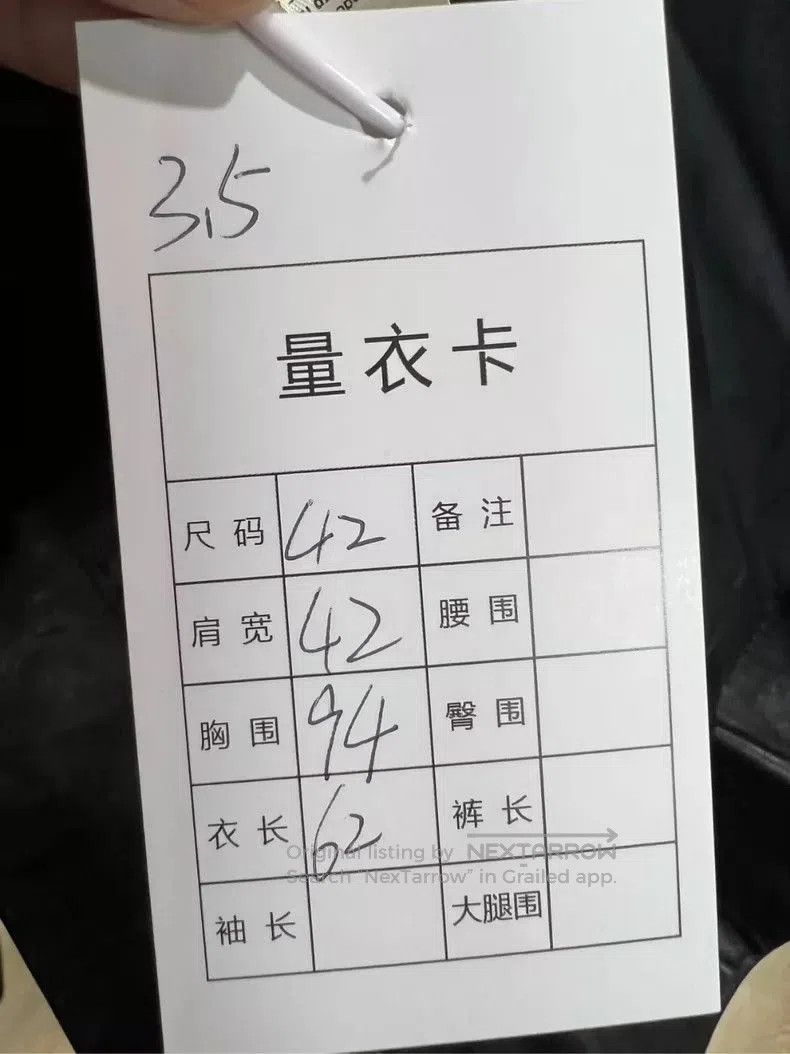 3.5
量衣卡
尺码 42 备注
肩宽 42 腰围
胸围 94 臀围
衣长 62 裤长
袖长 大腿围
Original listing by NEXTARROW
Search "NexTarrow" in Grailed app.